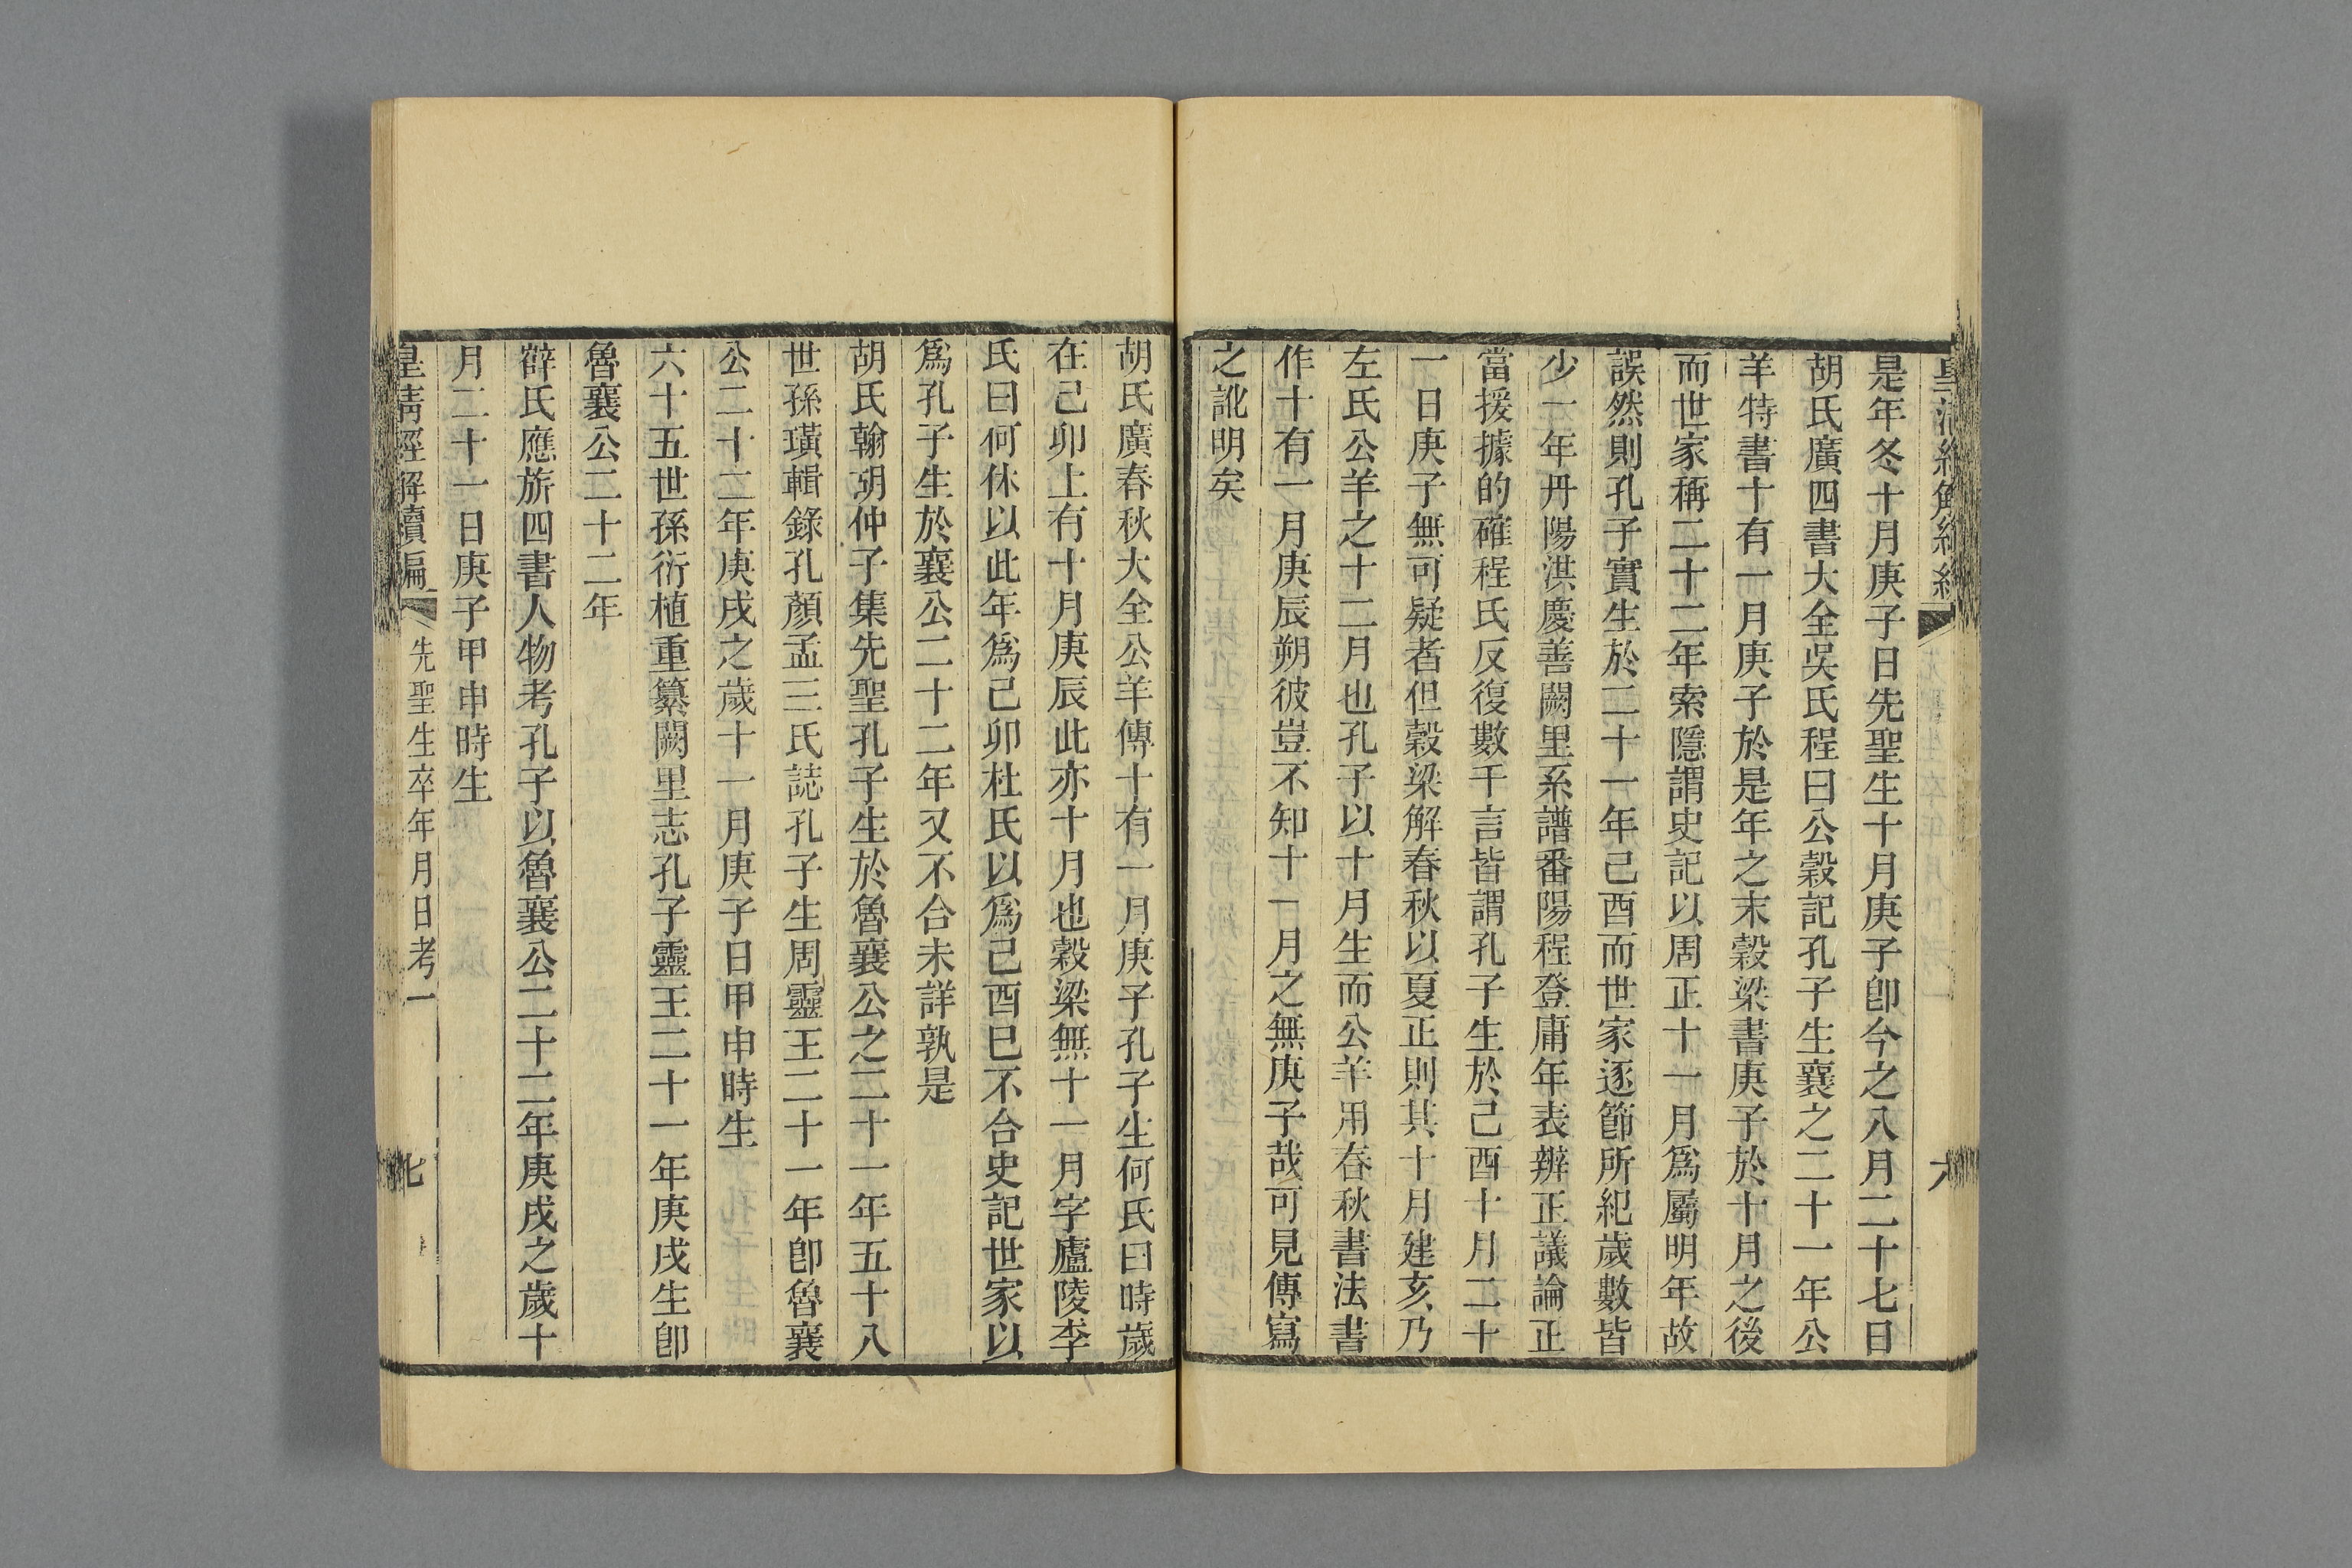 是年冬十月庚子日先聖生十月庚子卽今之八月二十七日
胡氏廣四書大全吳氏程曰公穀記孔子生襄之二十一年公
羊特書十有一月庚子於是年之末穀梁書庚子於十月之後
而世家稱二十二年索隱謂史記以周正十一月爲屬明年故
誤然則孔子實生於二十一年己酉而世家逐節所紀歲數皆
少一年丹陽洪慶善闕里系譜番陽程登庸年表辨正議論正
當援據的確程氏反復數千言皆謂孔子生於己酉十月二十
一日庚子無可疑者但穀梁解春秋以夏正則其十月建亥乃
左氏公羊之十二月也孔子以十月生而公羊用春秋書法書
作十有一月庚辰朔彼豈不知十一月之無庚子哉可見傳寫
之訛明矣
胡氏廣春秋大全公羊傳十有一月庚子孔子生何氏曰時歲
在己卯上有十月庚辰此亦十月也穀梁無十一月字廬陵李
氏曰何休以此年爲己卯杜氏以爲己酉巳不合史記世家以
爲孔子生於襄公二十二年又不合未詳孰是
胡氏翰胡仲子集先聖孔子生於魯襄公之二十一年五十八
世孫璜輯錄孔顏孟三氏誌孔子生周靈王二十一年卽魯襄
公二十二年庚戌之歲十一月庚子日甲申時生
六十五世孫衍植重纂闕里志孔子靈王二十一年庚戌生卽
魯襄公二十二年
薛氏應旂四書人物考孔子以魯襄公二十二年庚戌之歲十
月二十一日庚子甲申時生
皇清經解續編
先聖生卒年月日考一